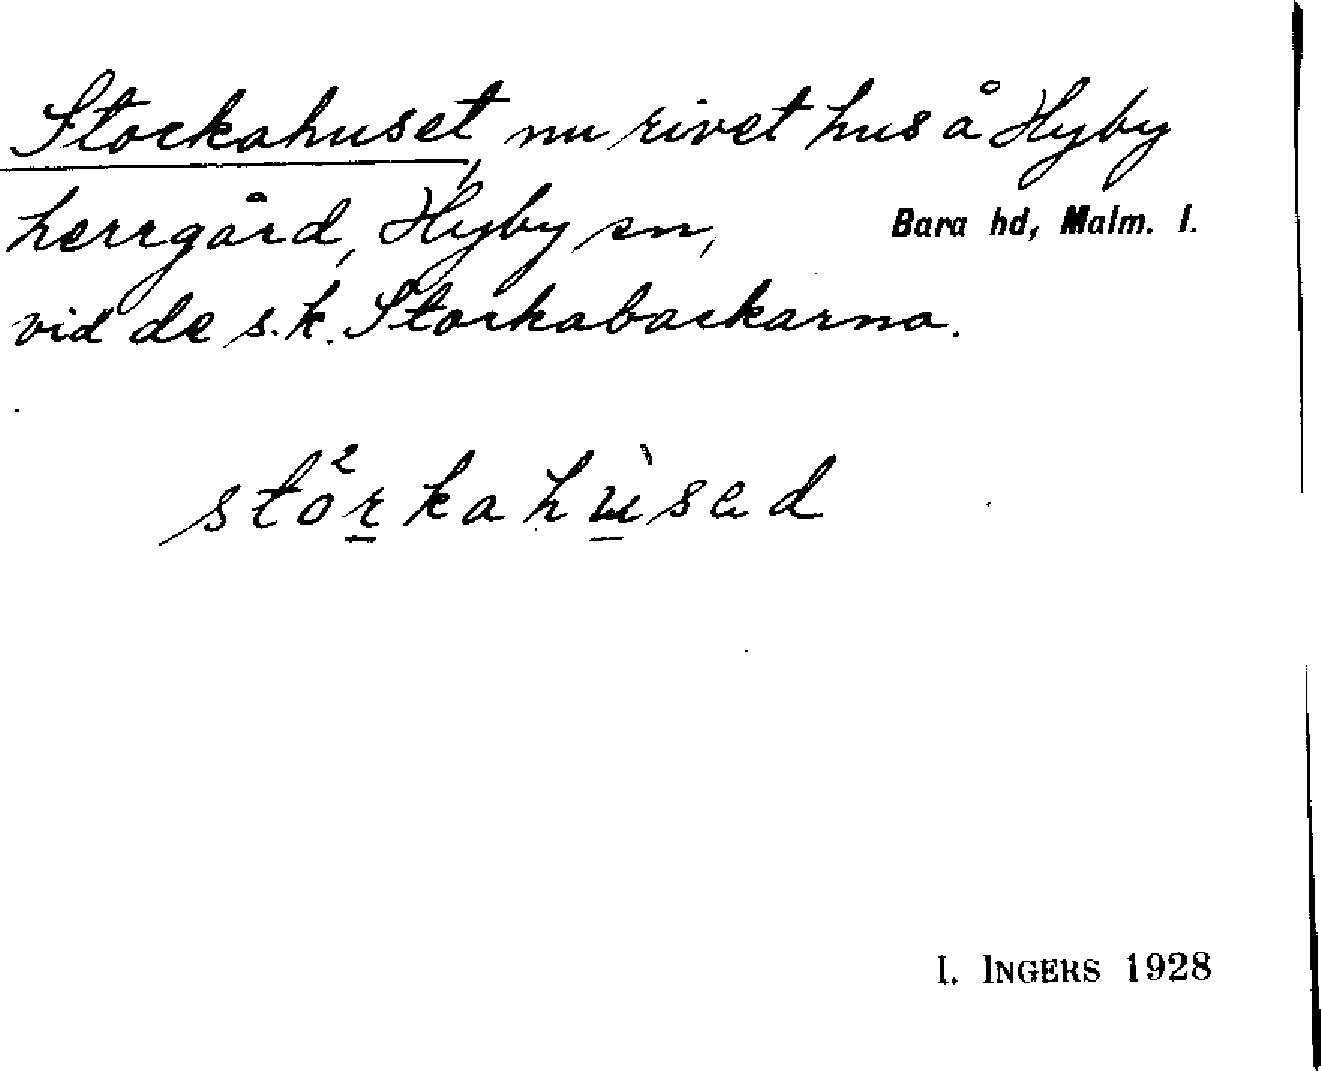 Stockahuset, nu rivet hus å Hyby
herrgård, Hyby sn, Bara hd, Malm. l.
vid de s.k. Stockabackarna.
stò²rkahùsed
I. INGERS 1928